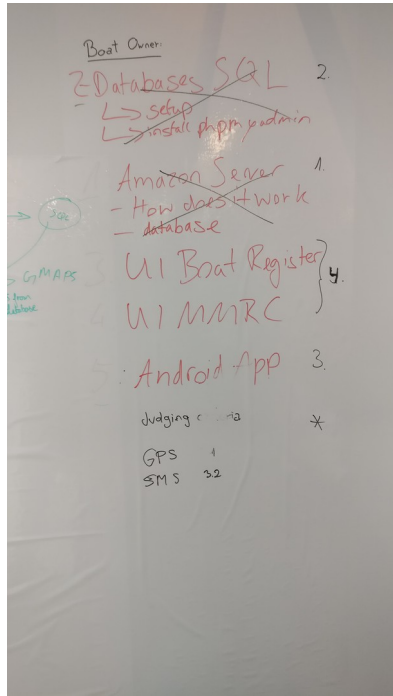 Boat Owner.
2 Databases SQL 2.
↳ setup
↳ install phpmyadmin
Amazon Server 1.
- How does it work
- database
SQL
GMAPS
database
UI Boat Register
UI MMRC 4.
Android App 3.
Judging *
GPS 1
SMS 3.2